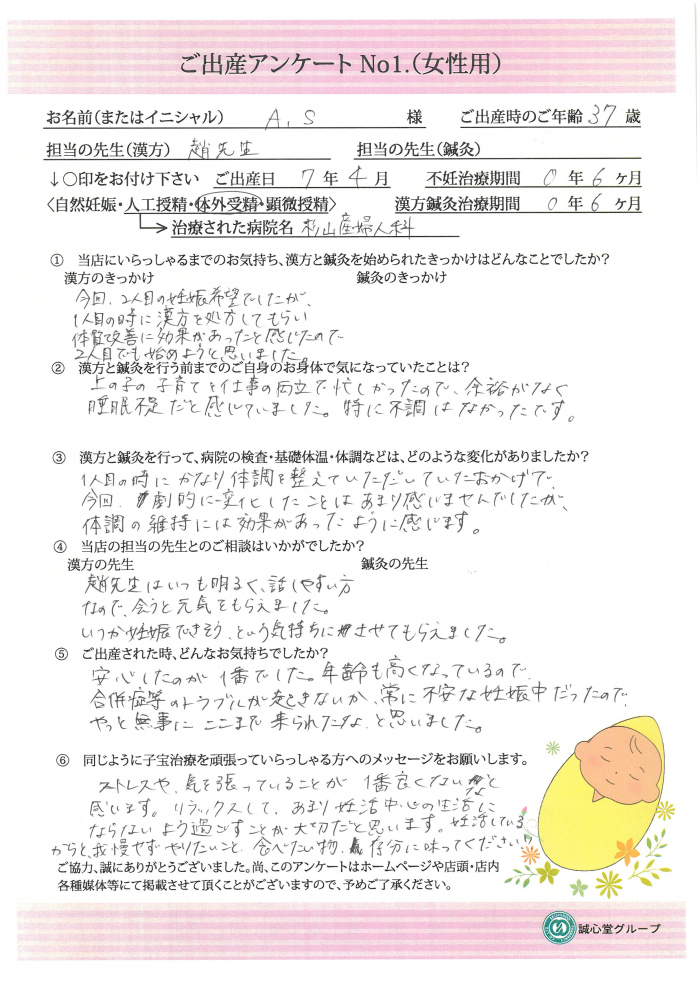 ご出産アンケート No1.(女性用)
お名前(またはイニシャル) A.S 様 ご出産時のご年齢 37 歳
担当の先生(漢方) 趙先生 担当の先生(鍼灸)
↓○印をお付け下さい ご出産日 7 年 4 月 不妊治療期間 0 年 6 ヶ月
〈自然妊娠・人工授精・体外受精・顕微授精〉 漢方鍼灸治療期間 0 年 6 ヶ月
治療された病院名 杉山産婦人科
① 当店にいらっしゃるまでのお気持ち、漢方と鍼灸を始められたきっかけはどんなことでしたか?
漢方のきっかけ 鍼灸のきっかけ
今回、2人目の妊娠希望でしたが、
1人目の時に漢方を処方してもらい
体質改善に効果があったと感じたので
2人目でも始めようと思いました。
② 漢方と鍼灸を行う前までのご自身のお身体で気になっていたことは?
上の子の子育てと仕事の両立で忙しかったので、余裕がなく
睡眠不足だと感じていました。特に不調はなかったです。
③ 漢方と鍼灸を行って、病院の検査・基礎体温・体調などは、どのような変化がありましたか?
1人目の時にかなり体調を整えていただいていたおかげで、
今回、劇的に変化したことはあまり感じませんでしたが、
体調の維持には効果があったように感じます。
④ 当店の担当の先生とのご相談はいかがでしたか?
漢方の先生 鍼灸の先生
趙先生はいつも明るく、話しやすい方
なので、会うと元気をもらえました。
いつか妊娠できそう、という気持ちにさせてもらえました。
⑤ ご出産された時、どんなお気持ちでしたか?
安心したのが1番でした。年齢も高くなっているので、
合併症等のトラブルが起きないか、常に不安な妊娠中だったので、
やっと無事にここまで来られたな、と思いました。
⑥ 同じように子宝治療を頑張っていらっしゃる方へのメッセージをお願いします。
ストレスや、気を張っていることが1番良くないなと
感います。リラックスして、あまり妊活中心の生活に
ならないよう過ごすことが大切だと思います。妊活している
からと我慢せずやりたいこと、食べたい物、存分に味ってください。
ご協力、誠にありがとうございました。尚、このアンケートはホームページや店頭・店内
各種媒体等にて掲載させて頂くことがございますので、予めご了承ください。
誠心堂グループ